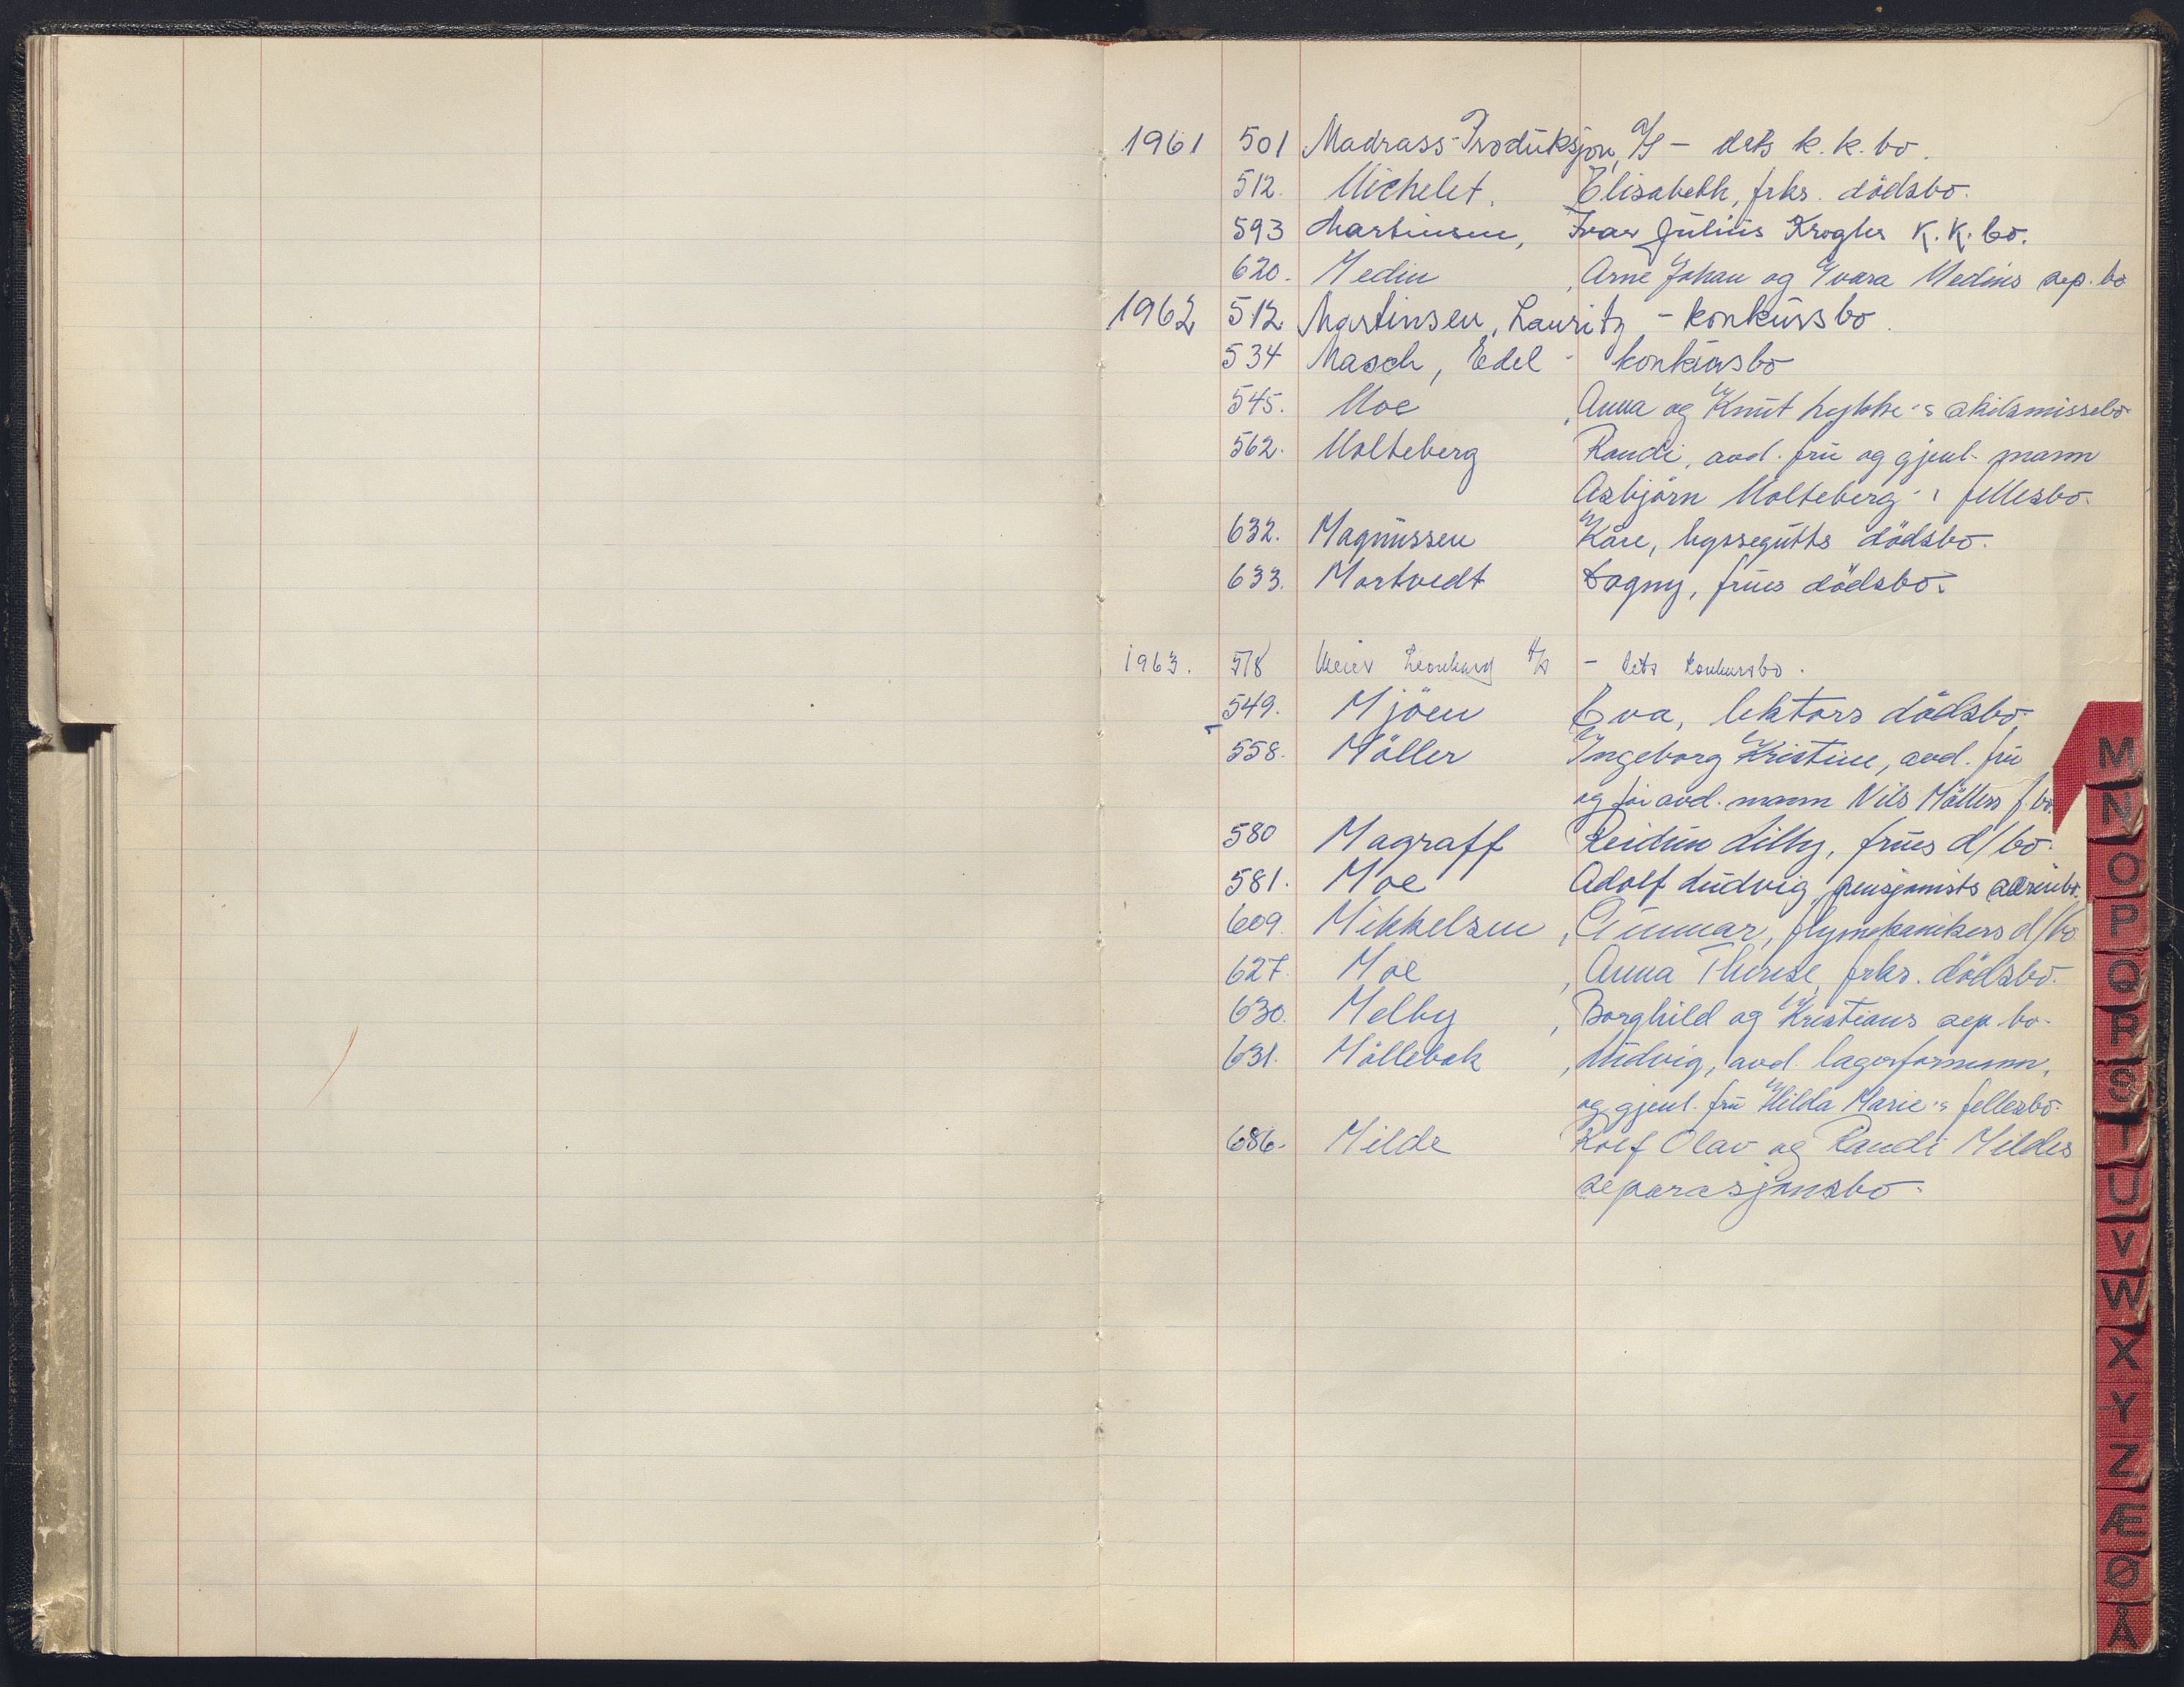 1961 501 Madrass-Produksjon, A/S - dets k.k.bo.
512. Michelet. Elisabeth, frks. dødsbo.
593 Martinsen, Ivar Julius Kroghs K.K.bo.
620. Medin , Arne Johan og Yvara Medins sep.bo
1962 512 Martinsen, Lauritz - konkursbo.
534 Masch, Edel - konkursbo
545. Moe , Anna og Knut Lykke's skilsmissebo
562. Molteberg Randi, avd. fru og gjenl. mann
Asbjørn Molteberg's fellesbo.
632. Magnussen Kåre, hyssegutts dødsbo.
633. Mortvedt Dagny, frues dødsbo.
1963. 518 Meier Leonhard A/S - dets konkursbo.
549. Mjøen Eva, lektors dødsbo.
558. Møller Ingeborg Kristine, avd. fru
og før avd. mann Nils Møllers f.bo.
580 Magraff Reidun Lilly, frues d/bo.
581. Moe Adolf Ludvig, pensjonists bo.
609. Mikkelsen , Gunnar, flymekanikers d/bo
627. Moe , Anna Therese, frks. dødsbo.
630. Melby , Borghild og Kristians sep.bo.
631. Møllebak , Ludvig, avd. lagerformann,
og gjenl. fru Hilda Marie's fellesbo.
686. Milde Rolf Olav og Randi Mildes
separasjonsbo.
M
N
O
P
Q
R
S
T
U
V
W
X
Y
Z
Æ
Ø
Å